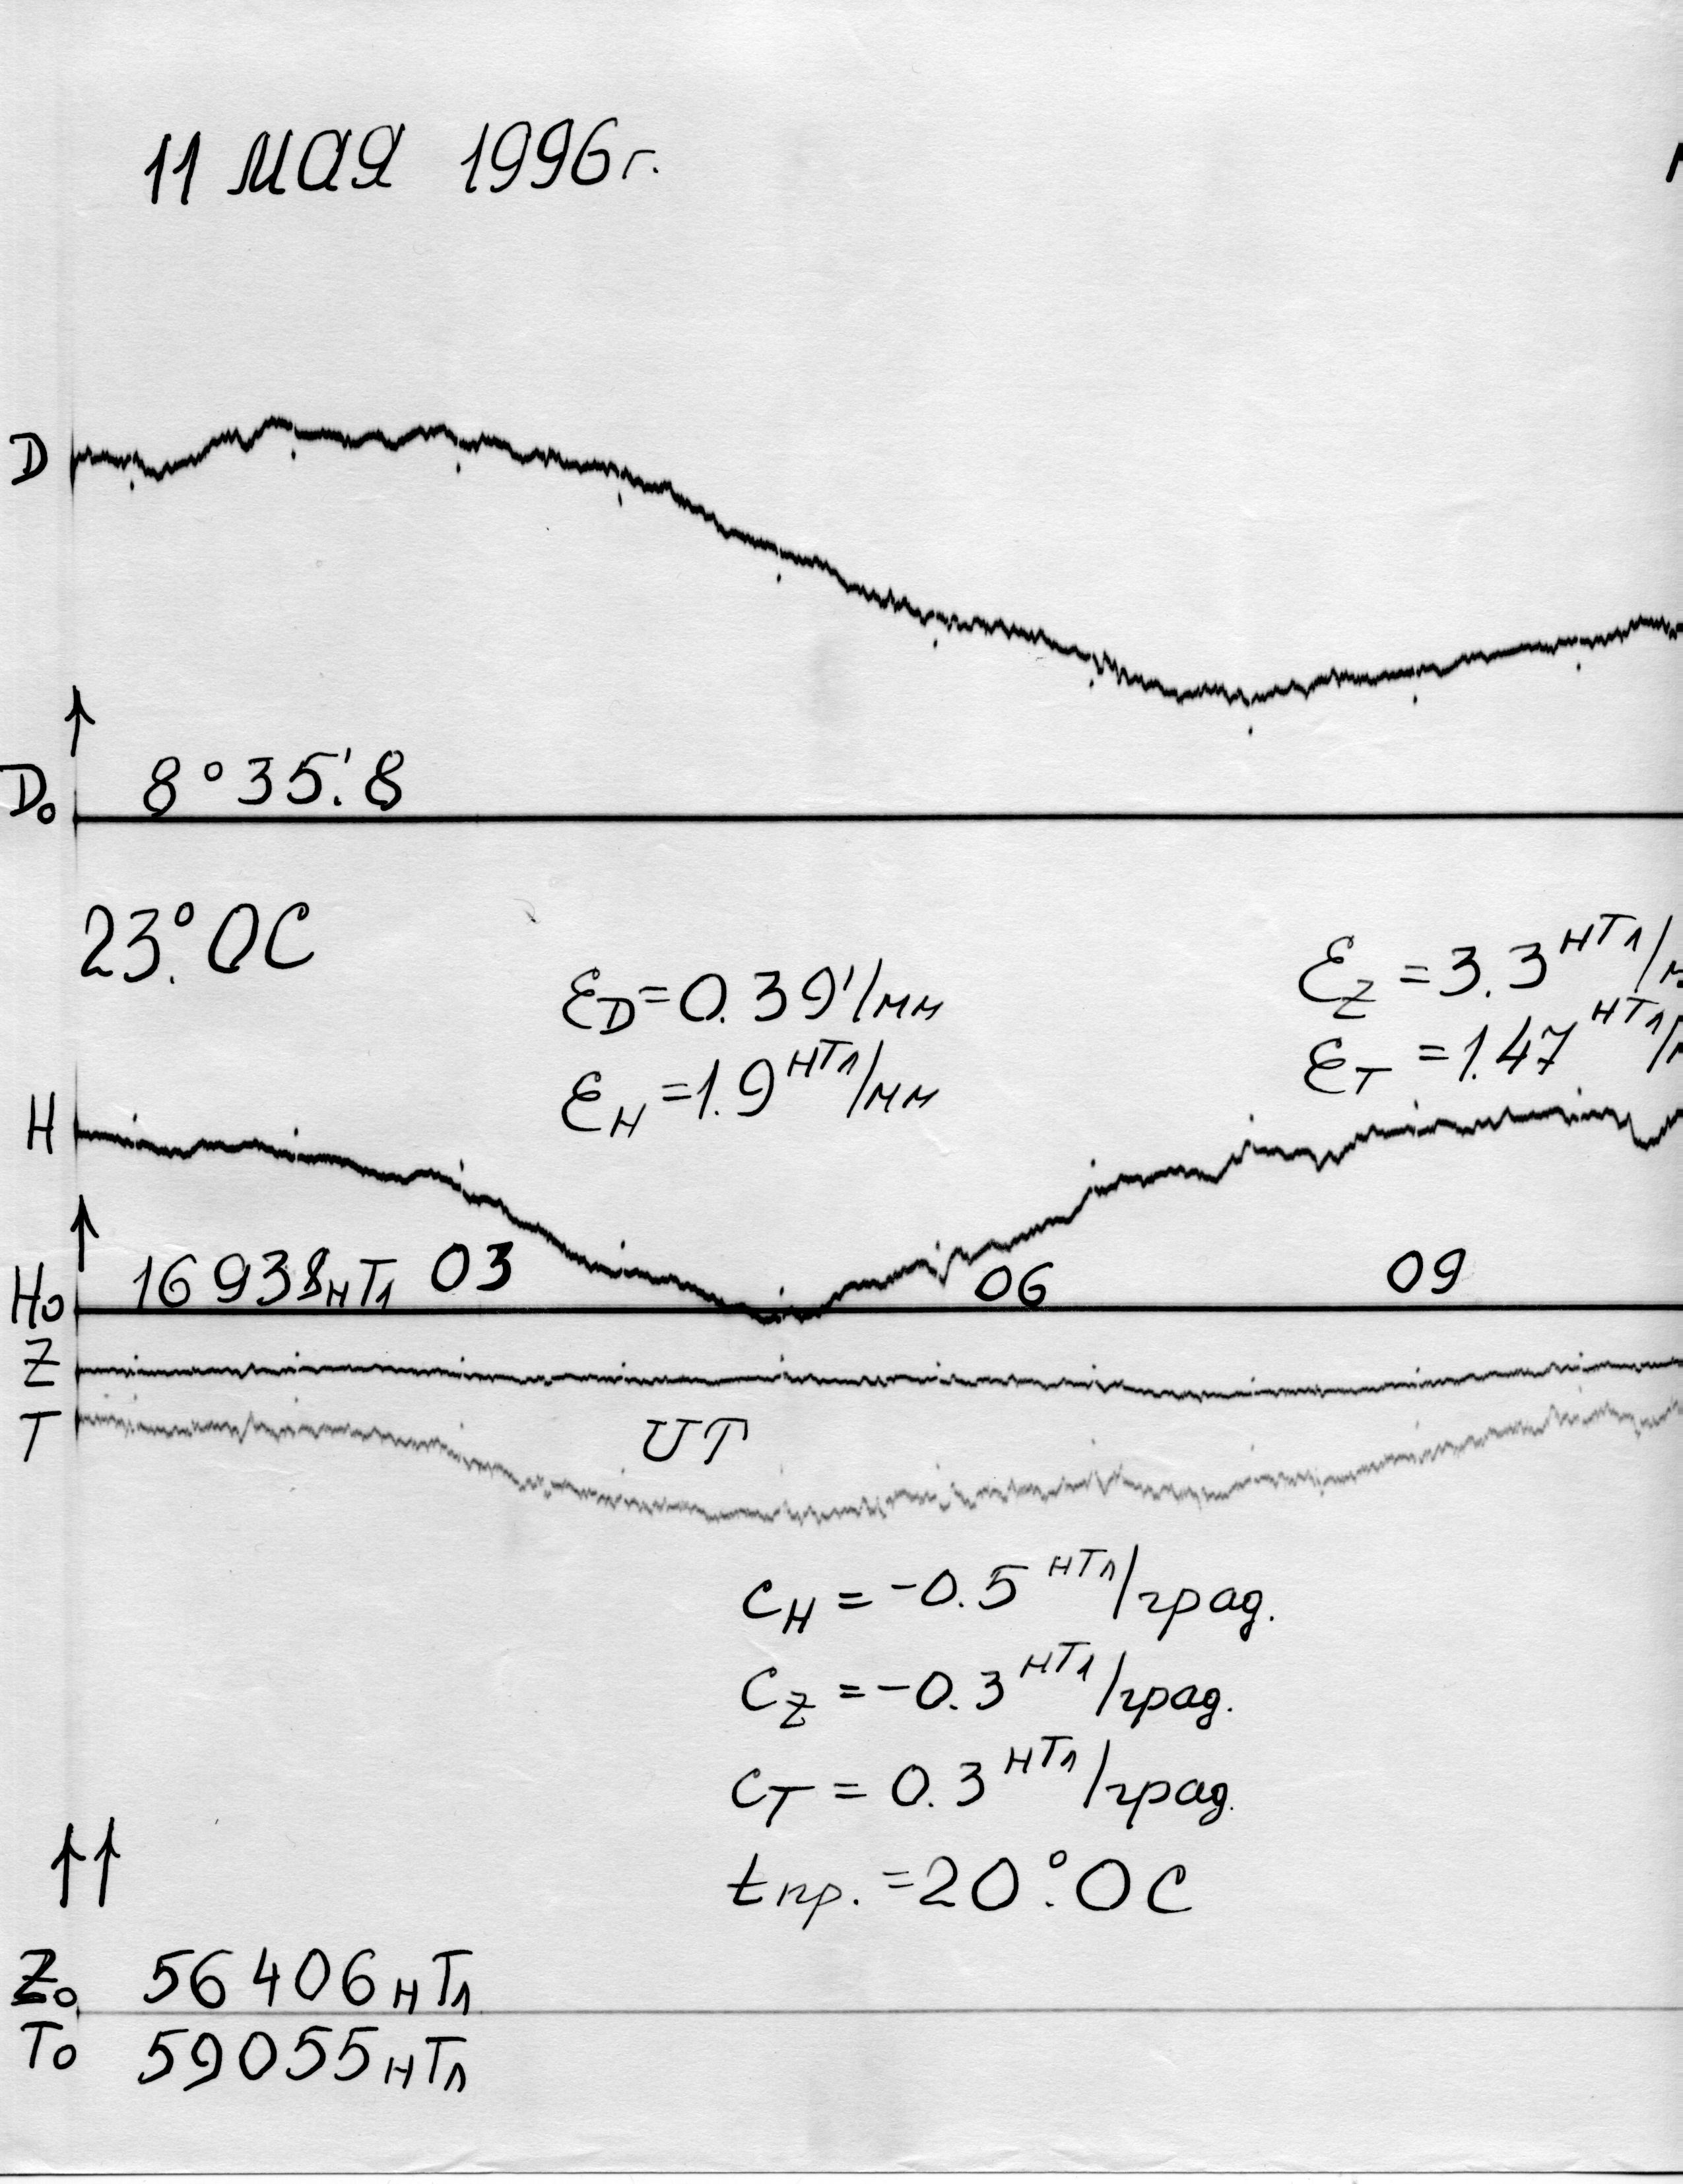 11 МАЯ 1996г.
D
D₀ 8°35.'8
23.°0C
ε_D=0.39'/мм
ε_H=1.9 нТл/мм
ε_Z=3.3 нТл/
ε_T=1.47 нТл/
H
H₀ 16938нТл 03 06 09
Z
T
UT
C_H = -0.5 нТл/град.
C_Z = -0.3 нТл/град.
C_T = 0.3 нТл/град.
t пр. =20.°0 C
Z₀ 56406 нТл
T₀ 59055 нТл